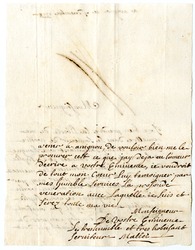 venir a avignon, de vouloir bien me le
procurer cest ce que jay deja eu l'honneur
d'ecrire a Vostre Eminence, je voudrois
de tout mon Cœur luy temoigner par
mes humble services la profonde
veneration avec Laquelle je suis et
seray toute ma vie.
Monseigneur
De Vostre Eminence
Le tres humble et tres obeissant
serviteur